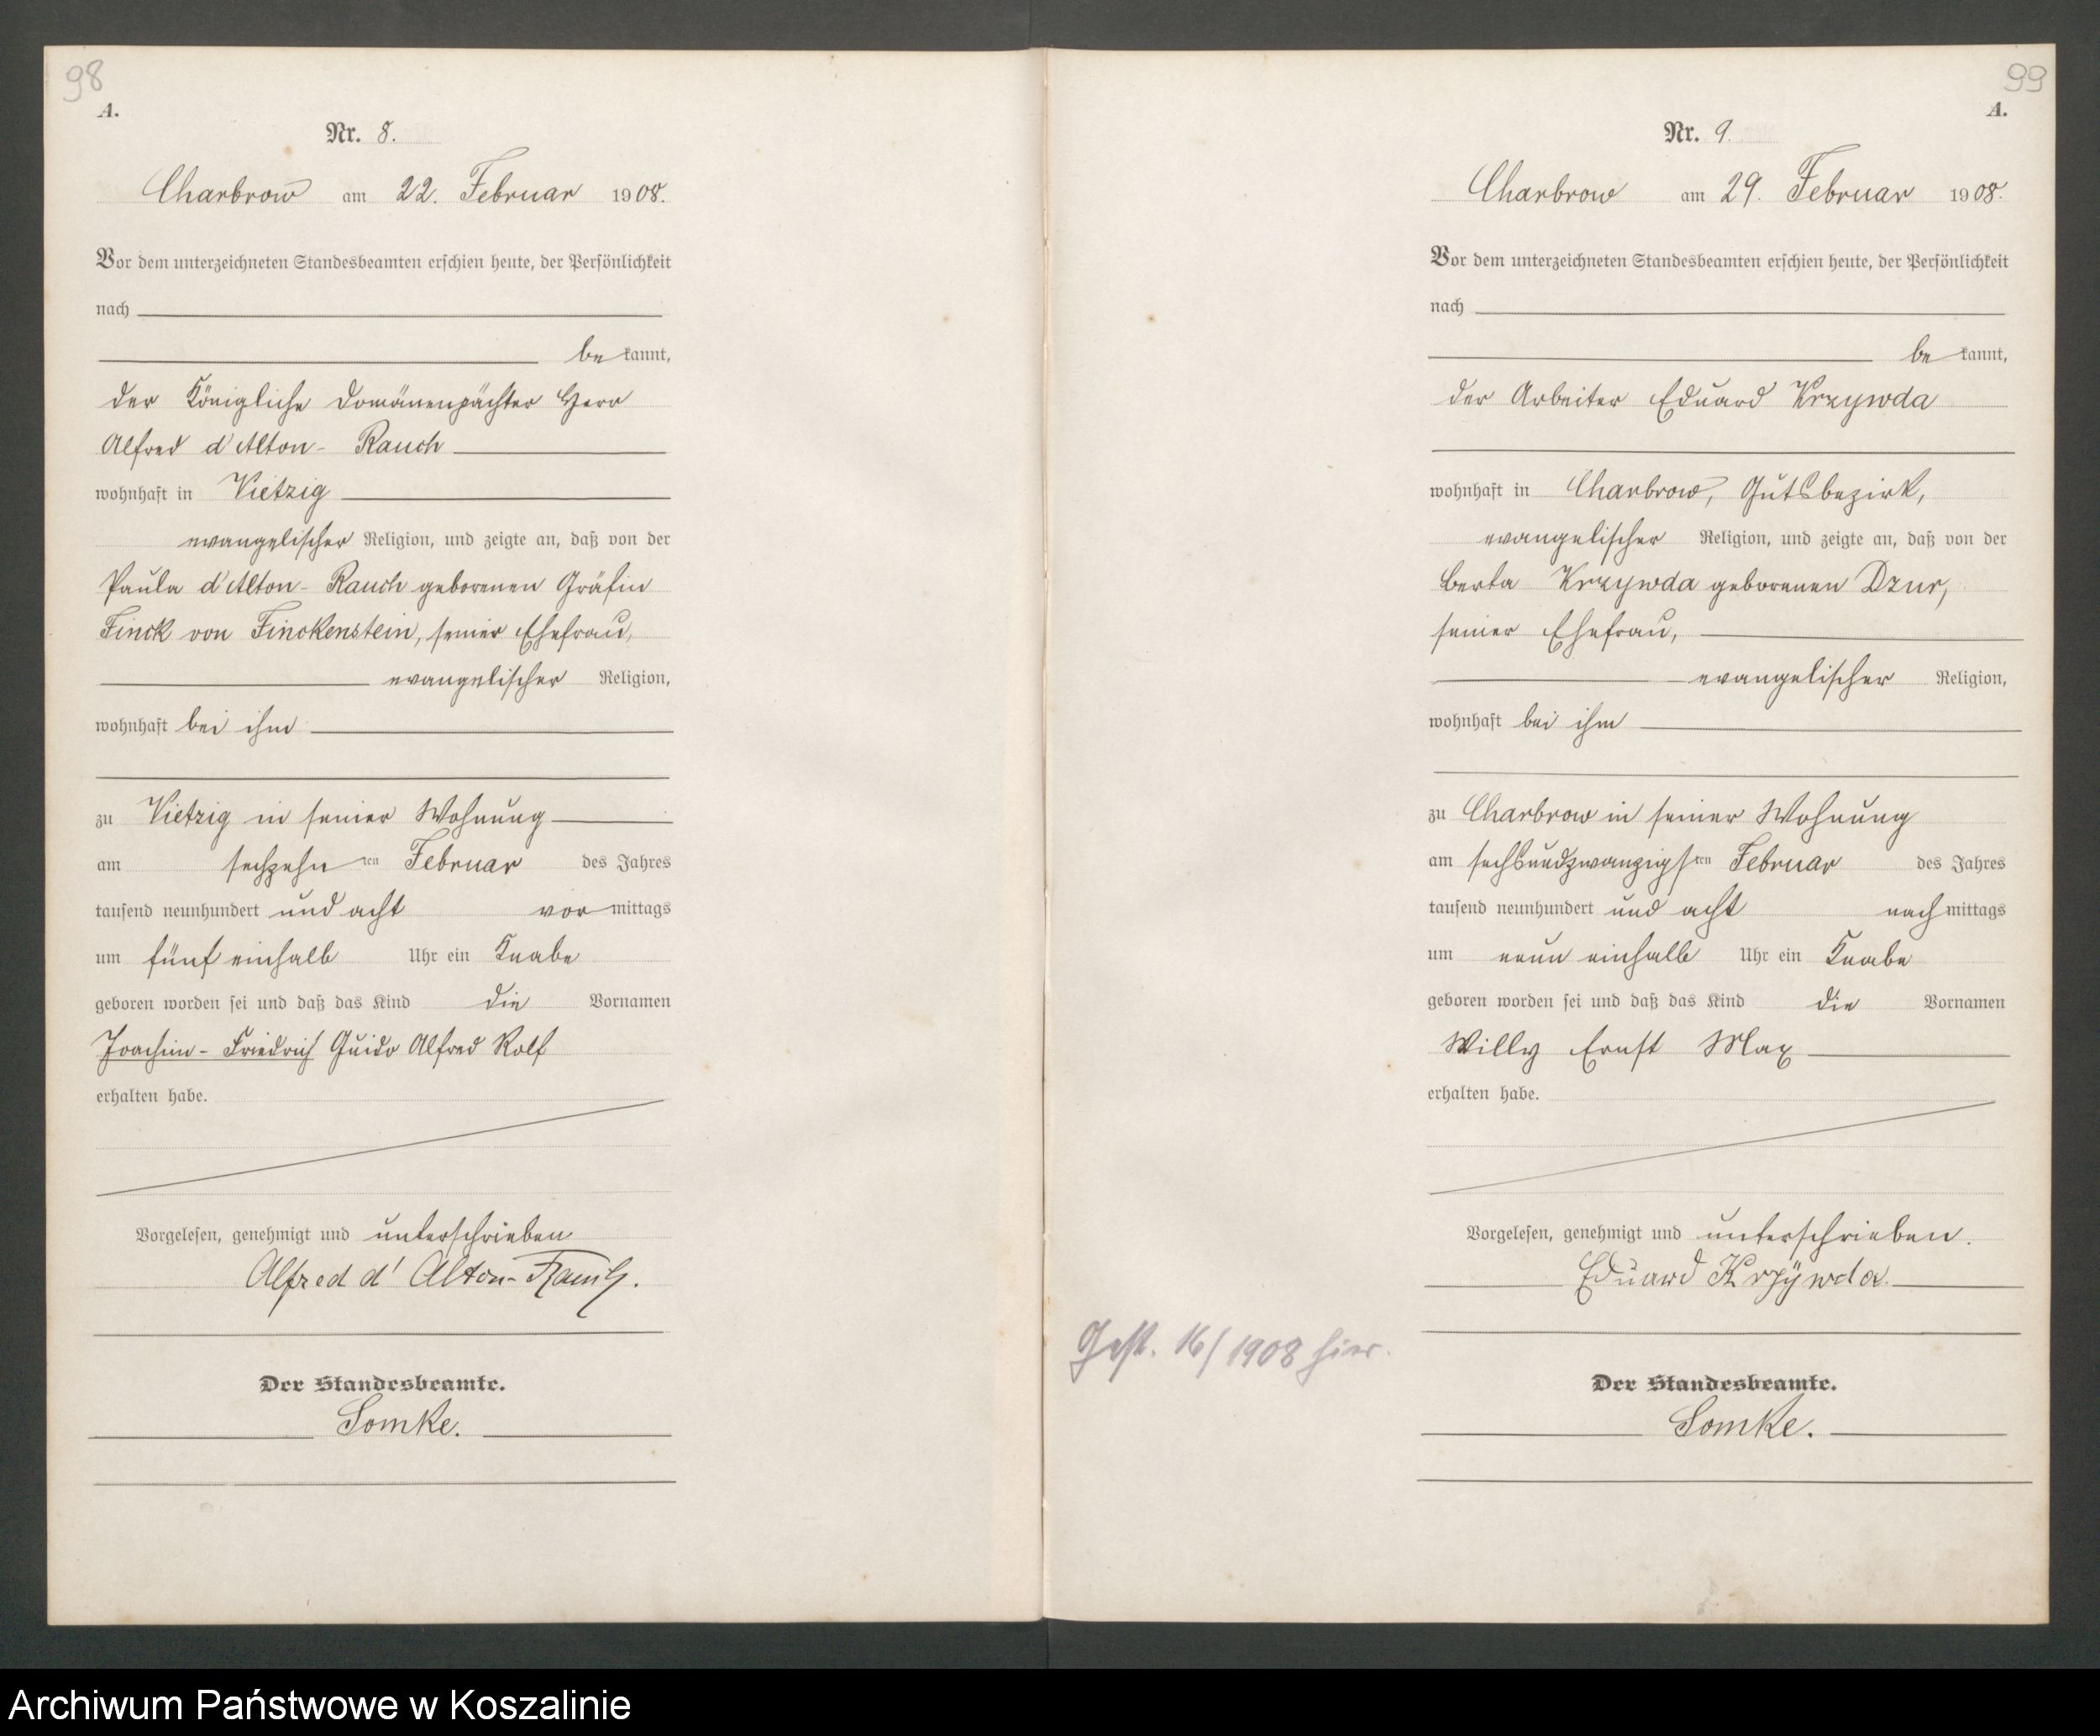 98
A.
Nr. 8.
Charbrow am 22. Februar 1908.
Vor dem unterzeichneten Standesbeamten erschien heute, der Persönlichkeit
nach
be kannt,
der Königliche Domänenpächter Herr
Alfred d'Alton- Rauch
wohnhaft in Vietzig
evangelischer Religion, und zeigte an, daß von der
Paula d'Alton- Rauch geborenen Gräfin
Finck von Finckenstein, seiner Ehefrau,
evangelischer Religion,
wohnhaft bei ihm
zu Vietzig in seiner Wohnung
am sechzehn ten Februar des Jahres
tausend neunhundert und acht vor mittags
um fünf einhalb Uhr ein Knabe
geboren worden sei und daß das Kind die Vornamen
Joachim- Friedrich Guido Alfred Rolf
erhalten habe.
Vorgelesen, genehmigt und unterschrieben
Alfred d' Alton-Rauch.
Der Standesbeamte.
Somke.
99
A.
Nr. 9.
Charbrow am 29. Februar 1908.
Vor dem unterzeichneten Standesbeamten erschien heute, der Persönlichkeit
nach
be kannt,
der Arbeiter Eduard Krzywda
wohnhaft in Charbrow, Gutsbezirk,
evangelischer Religion, und zeigte an, daß von der
Berta Krzywda geborenen Dzur,
seiner Ehefrau,
evangelischer Religion,
wohnhaft bei ihm
zu Charbrow in seiner Wohnung
am sechsundzwanzigs ten Februar des Jahres
tausend neunhundert und acht nach mittags
um neun einhalb Uhr ein Knabe
geboren worden sei und daß das Kind die Vornamen
Willy Ernst Max
erhalten habe.
Vorgelesen, genehmigt und unterschrieben.
Eduard Krzÿwda.
Gest. 16/1908 hier.
Der Standesbeamte.
Somke.
Archiwum Państwowe w Koszalinie